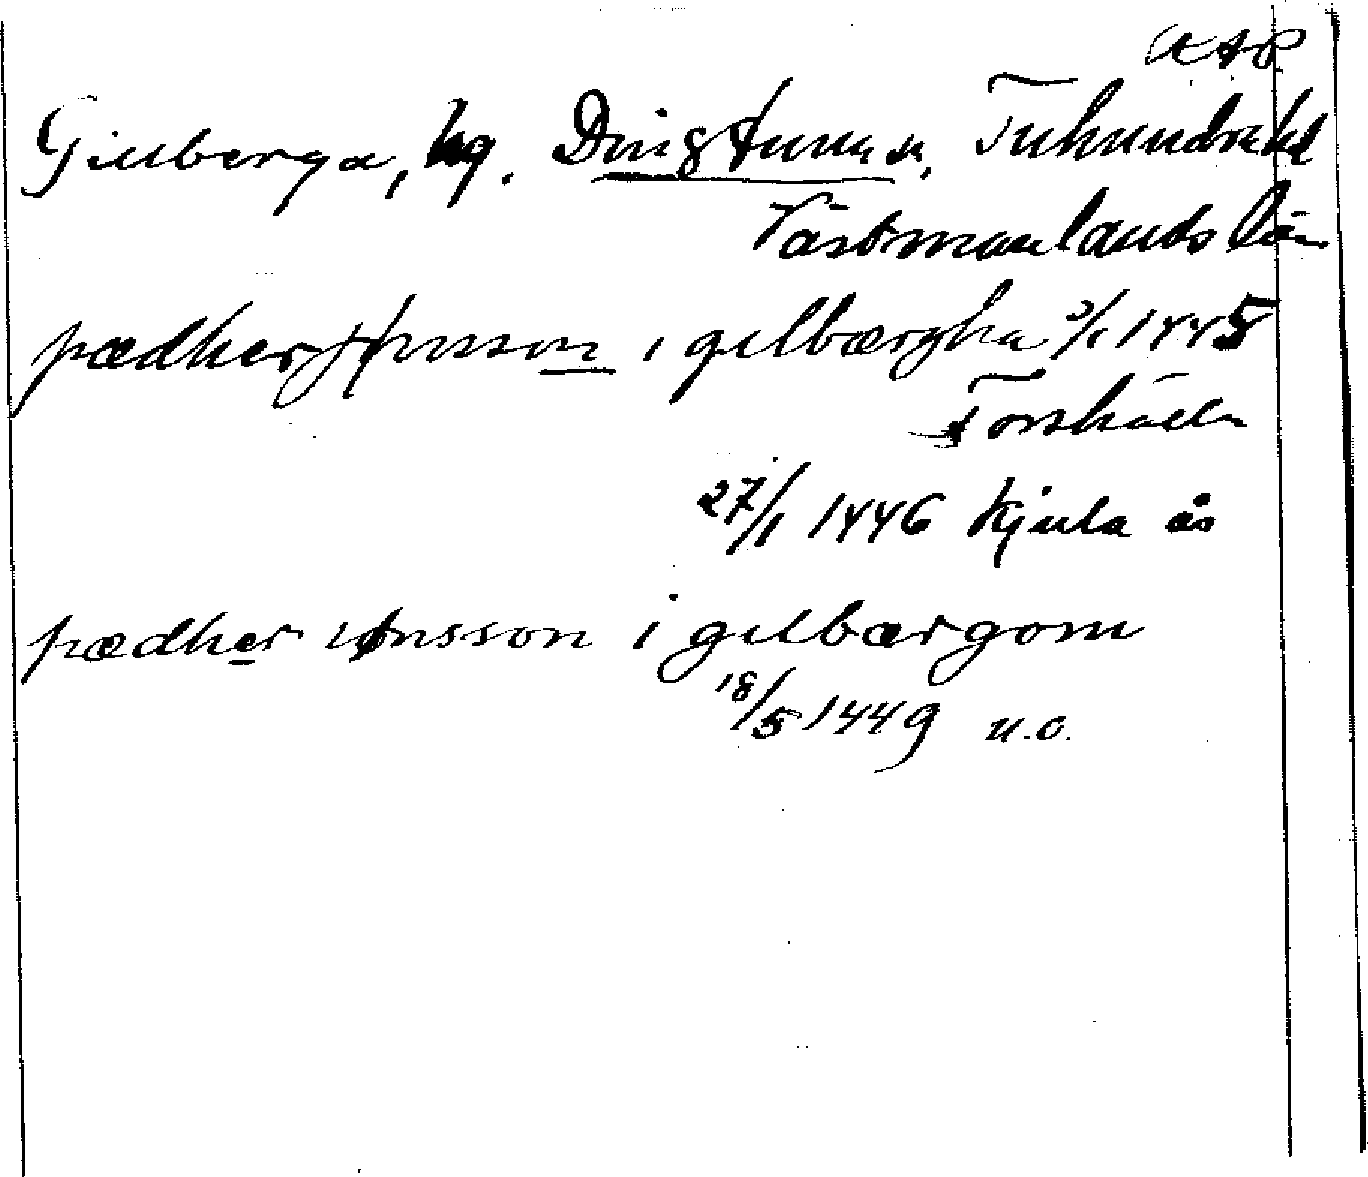 Gillberga, hg. Dingtuna sn, Tuhundra hd
Västmanlands län
pædher jønsson i gelbærgha 3/1 1445
Torshälla
27/1 1446 Kjula ås
pædher iønsson i gelbærgom
18/5 1449 u.o.